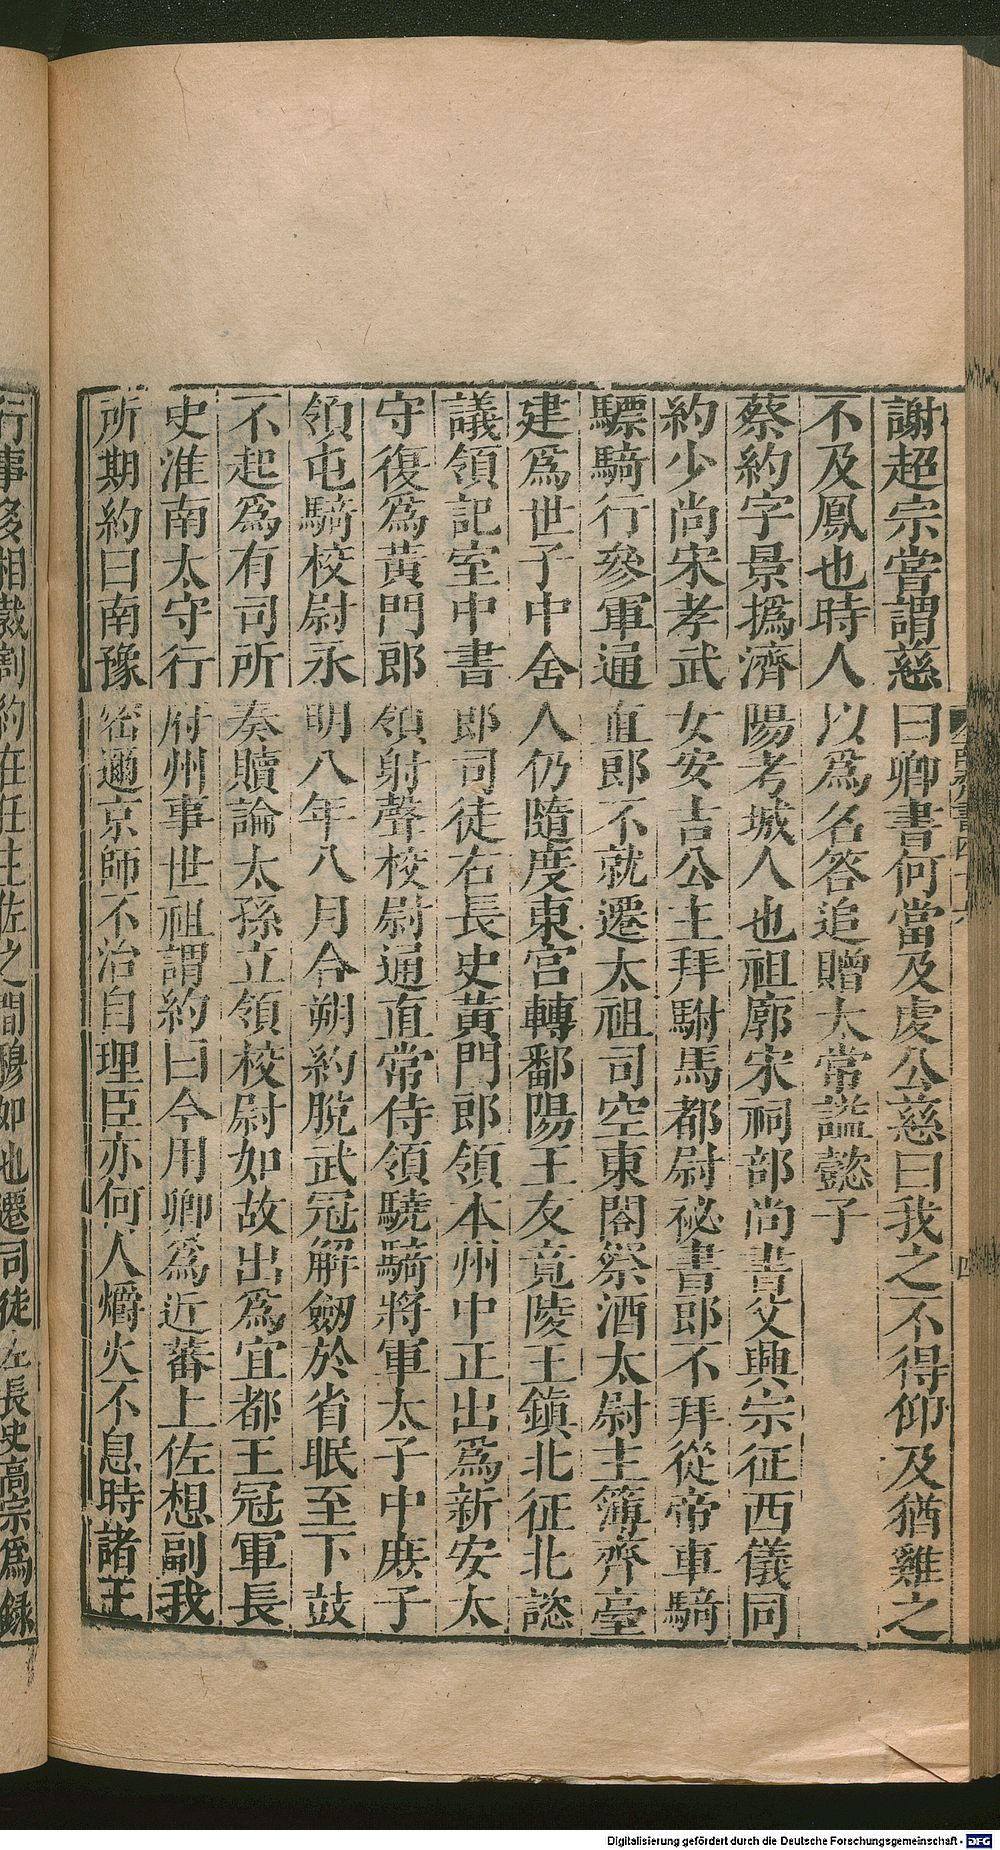 謝超宗嘗謂慈曰卿書何當及虔公慈曰我之不得仰及猶雞之
不及鳳也時人以爲名答追贈太常謚懿子
蔡約字景撝濟陽考城人也祖廓宋祠部尚書父興宗征西儀同
約少尚宋孝武女安吉公主拜駙馬都尉祕書郎不拜從帝車騎
驃騎行參軍通直郎不就遷太祖司空東閤祭酒太尉主簿齊臺
建爲世子中舍人仍隨度東宮轉鄱陽王友竟陵王鎮北征北諮
議領記室中書郎司徒右長史黃門郎領本州中正出爲新安太
守復爲黃門郎領射聲校尉通直常侍領驍騎將軍太子中庶子
領屯騎校尉永明八年八月合朔約脫武冠解劒於省眠至下鼓
不起爲有司所奏贖論太孫立領校尉如故出爲宜都王冠軍長
史淮南太守行府州事世祖謂約曰今用卿爲近蕃上佐想副我
所期約曰南豫密邇京師不治自理臣亦何人爝火不息時諸王
行事多相裁割約在任主佐之間穆如也遷司徒左長史高宗爲錄
Digitalisierung gefördert durch die Deutsche Forschungsgemeinschaft - DFG